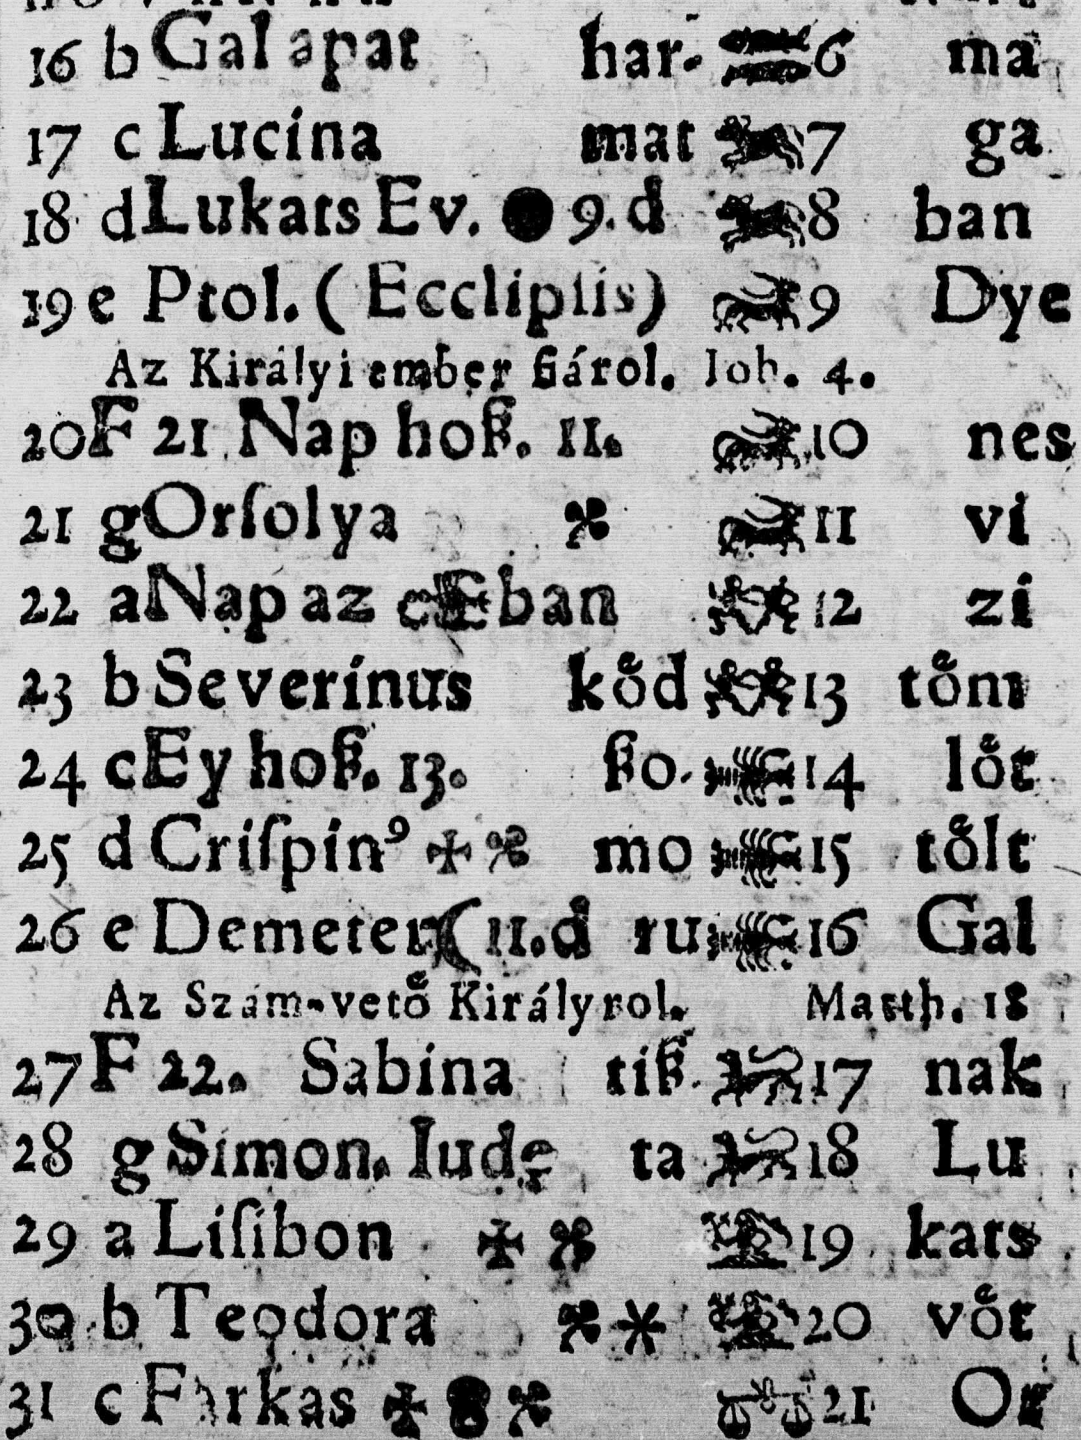 16 b Gal apat har- 6 ma
17 c Lucina mat 7 ga
18 d Lukats Ev. ● 9. d 8 ban
19 e Ptol. ( Ecclipsis) 9 Dye
Az Királyi ember ßárol. Ioh. 4.
20 F 21 Nap hoß. 11. 10 nes
21 g Orſolya 11 vi
22 a Nap az ban 12 zi
23 b Severinus koͤd 13 toͤm
24 c Ey hoß. 13. ßo- 14 loͤt
25 d Criſpinꝰ ✠ mo 15 toͤlt
26 e Demeter ( 11. d ru 16 Gal
Az Szám-vetoͤ Királyrol. Matth. 18
27 F 22. Sabina tiß 17 nak
28 g Simon. Iudę ta 18 Lu
29 a Liſibon ✠ 19 kats
30 b Teodora * 20 voͤt
31 c Farkas ✠ 21 Or